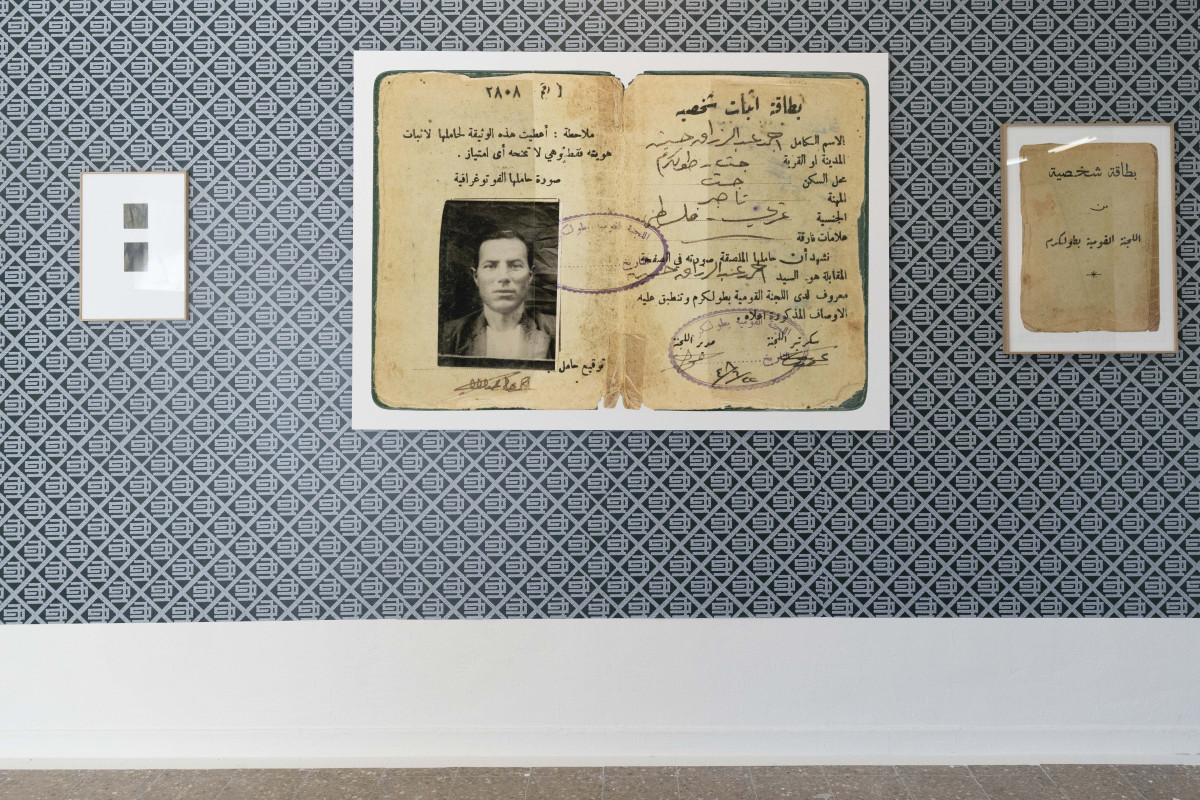 بطاقة اثبات شخصيه
الاسم الكامل احمد عبد الرزاق
المدينة او القرية جت - طولكرم
محل السكن جت
المهنة تاجر
الجنسية عربي - فلسطيني
علامات فارقة
نشهد أن حاملها الملصقة صورته في الصفحة
المقابلة هو السيد احمد عبد الرزاق
معروف لدى اللجنة القومية بطولكرم وتنطبق عليه
الاوصاف المذكورة اعلاه .
سكرتير اللجنة مدير اللجنة
رقم ٢٨٠٨
ملاحظة : أعطيت هذه الوثيقة لحاملها لاثبات
هويته فقط وهي لا تمنحه أى امتياز .
صورة حاملها الفوتوغرافية
اللجنة القومية بطولكرم
توقيع حامل
بطاقة شخصية
من
اللجنة القومية بطولكرم